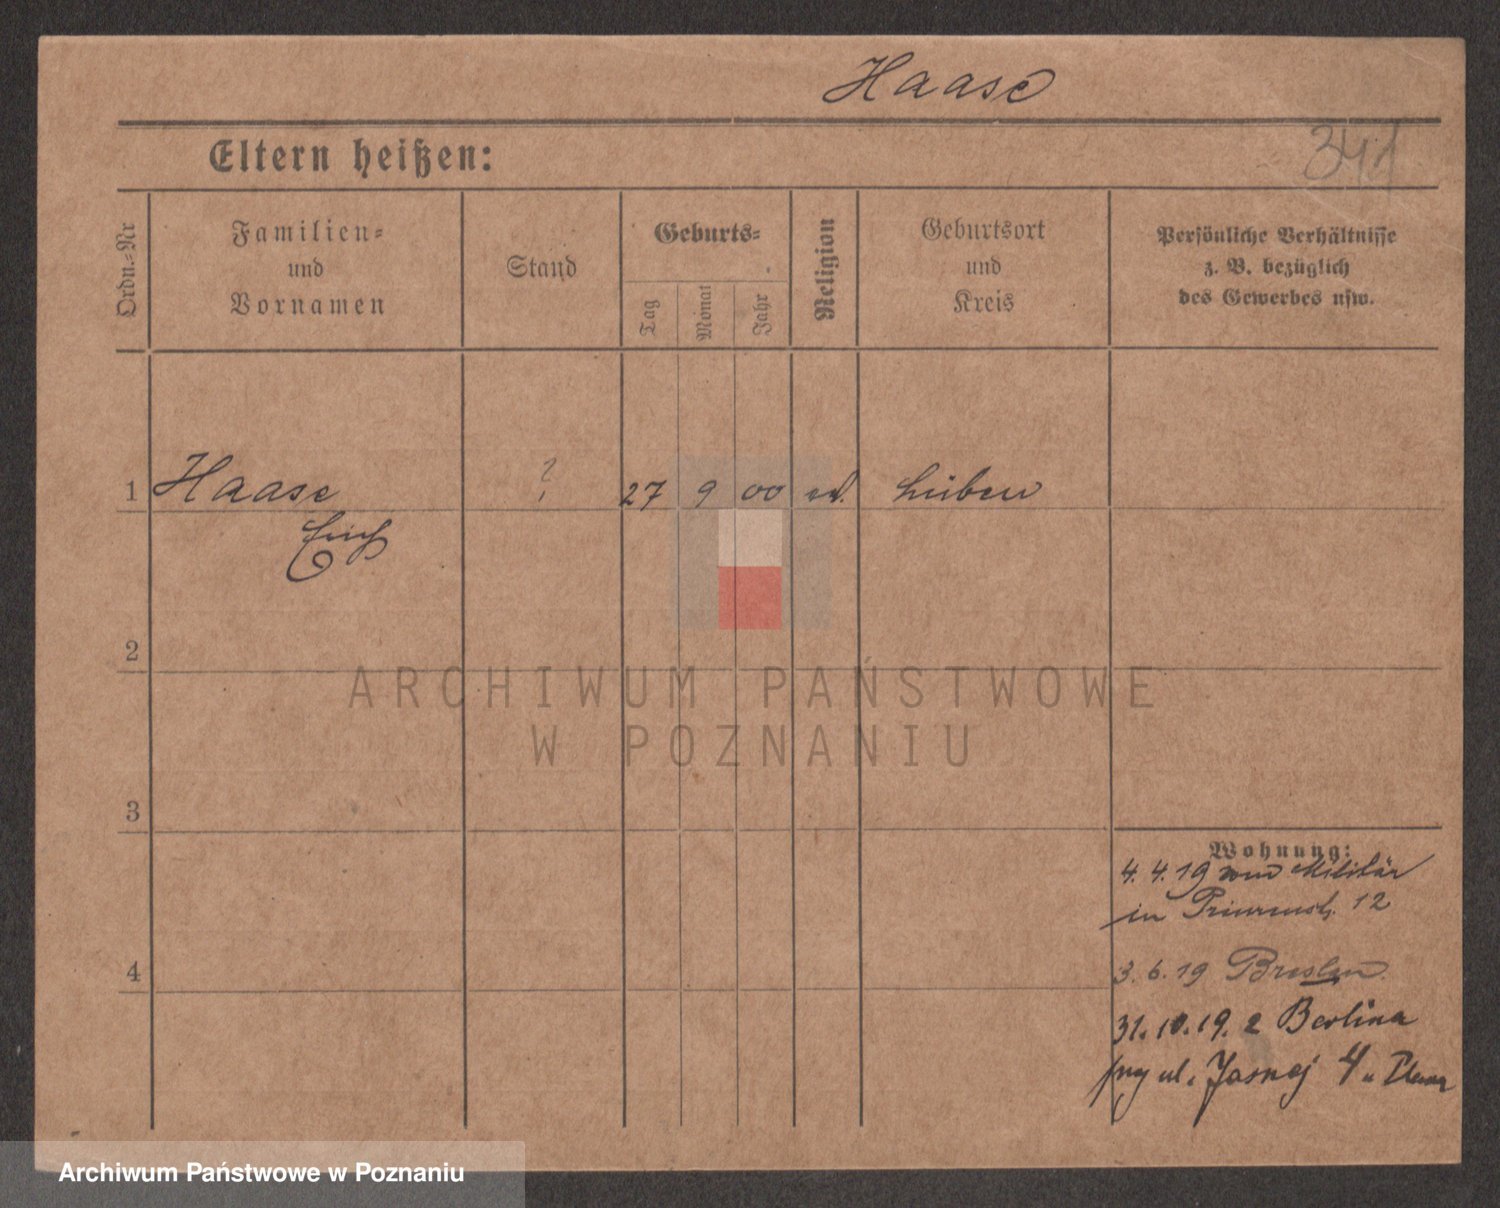 Haase
341
Eltern heißen:
Ordn.-Nr
Familien-
und
Vornamen
Stand
Geburts-
Tag
Monat
Jahr
Religion
Geburtsort
und
Kreis
Persönliche Verhältnisse
z. B. bezüglich
des Gewerbes usw.
1 Haase ? 27 9 00 ev. Lüben
Erich
2
3
4
Wohnung:
4. 4. 19 vom Militär
in 12
3. 6. 19 Breslau
31. 10. 19. z Berlina
przy ul. Jasnej 4 u
ARCHIWUM PAŃSTWOWE
W POZNANIU
Archiwum Państwowe w Poznaniu